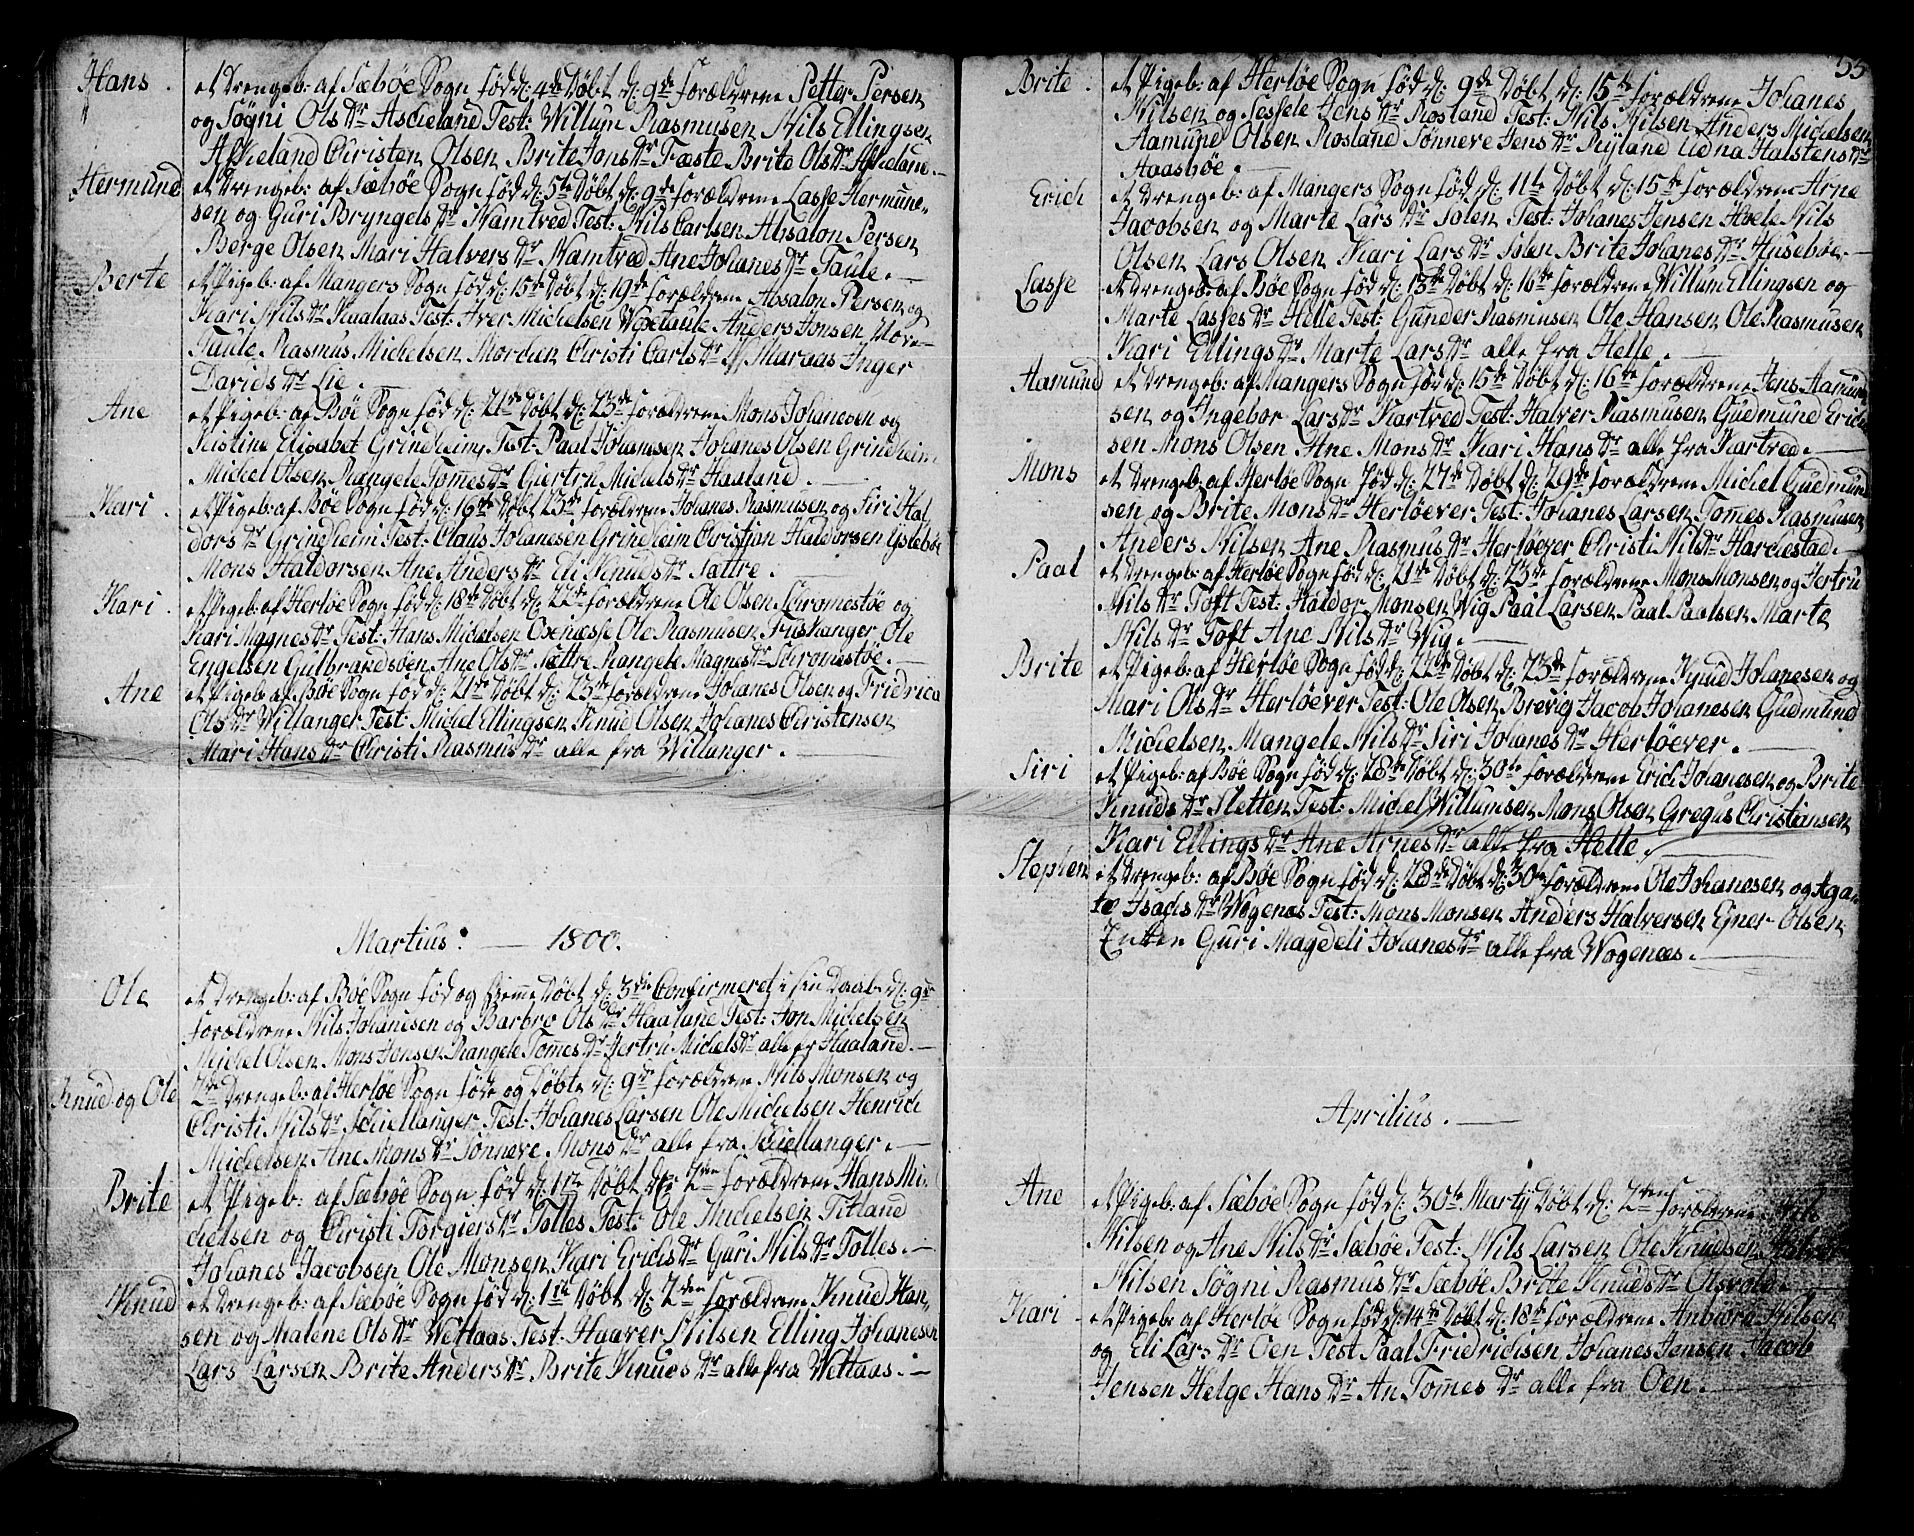 Hans. et Drengeb: af Sæbøe Sogn fød d: 4de Døbt d: 9de forældrene Petter Persen
og Søgni Ols Dr Askeland Test: Willum Rasmusen Nils Ellingsen
Askeland Christen Olsen Brite Jons Dr Fæste Brite Ols Dr Askeland.
Hermund et Drengeb: af Sæbøe Sogn fød d: 5te Døbt d: 9de forældrene Lasse Hermund-
sen og Guri Bryngels Dr Namtved Test: Nils Carlsen Absalon Persen
Berge Olsen Mari Halvers Dr Namtved Ane Johanes Dr Taule.
Berte et Pigeb: af Mangers Sogn fød d: 15de Døbt d: 19de forældrene Absalon Persen og
Kari Nils Dr Kualaas Test: Iver Michelsen Nøretaule Anders Jonsen
Taule Rasmus Michelsen Morchen Christi Carls Dr Inger
Davids Dr Lie.
Ane et Pigeb: af Bøe Sogn fød d: 21de Døbt d: 23de forældrene Mons Johanesen og
Kristine Elisabet Grindheim Test: Paal Johansen Johanes Olsen Grindheim
Michel Olsen Rangele Tommes Dr Giertru Michels Dr Haaland.
Kari. et Pigeb: af Bøe Sogn fød d: 16de Døbt 23de forældrene Johanes Rasmusen og Siri Hal
dors Dr Grindheim Test: Claus Johanesen Grindheim Christian Haldorsen Eideboe
Mons Haldorsen Ane Anders Dr Eli Knuds Dr Sættre.
Kari. et Pigeb: af Herløe Sogn fød d: 18de Døbt d: 22de forældrene Ole Olsen Schromestøe og
Kari Magnes Dr Test: Hans Michelsen Oxenæsse Ole Rasmusen Ole
Engelsen Gulbrandsøen Ane Ols Dr Sættre Rangele Magnes Dr Schromestøe.
Ane et Pigeb: af Bøe Sogn fød d: 21de Døbt d: 23de forældrene Johanes Olsen og Fridrica
Ols Dr Willanger Test: Michel Ellingsen Knud Olsen Johanes Christensen
Mari Hans Dr Christi Rasmus Dr alle fra Willanger.
Martius: 1800.
Ole et Drengeb: af Bøe Sogn fød og hiemme Døbt d: 3de Confirmeret i sin Daab d: 9de
forældrene Nils Johanesen og Barbro Ols Dr Haaland Test: Jon Michelsen
Michel Olsen Mons Jensen Rangele Tommes Dr Giertru Michels Dr alle fr Haaland.
Knud og Ole 2de Drengeb: af Herløe Sogn føde og Døbte d: 9de forældrene Nils Monsen og
Christi Nils Dr Schiellanger Test: Johanes Larsen Ole Michelsen Henrich
Michelsen Ane Mons Dr Sønneve Mons Dr alle fra Schiellanger.
Brite et Pigeb: af Sæbøe Sogn fød d: 1te Døbt d: 2den forældrene Hans Mi-
chelsen og Christi Torgiers Dr Tolles Test: Ole Michelsen Titland
Johanes Jacobsen Ole Monsen Kari Erichs Dr Guri Nils Dr Tolles.
Knud et Drengeb: af Sæbøe Sogn fød d: 1te Døbt d: 2den forældrene Knud Han-
sen og Malene Ols Dr Wetlaas. Test: Haaver Nilsen Elling Johanesen
Lars Larsen Brite Anders Dr Brite Knuds Dr alle fra Wetlaas.
55
Brite. et Pigeb: af Herløe Sogn fød d: 9de Døbt d: 15de forældrene Johanes
Nilsen og Sessele Jens Dr Rosland Test: Nils Nilsen Anders Michelsen
Aamund Olsen Rosland Sønneve Jens Dr Ryland Edna Halstens Dr
Haasbøe.
Erich et Drengeb: af Mangers Sogn fød d: 11te Døbt d: 15de forældrene Arne
Jacobsen og Marte Lars Dr Solen Test: Johanes Jensen Høele Nils
Olsen Lars Olsen Kari Lars Dr Solen Brite Johanes Dr Husebøe.
Lasse et Drengeb: af Bøe Sogn fød d: 13de Døbt d: 16de forældrene Willum Ellingsen og
Marte Lasses Dr Helle Test: Gunder Rasmusen Ole Hansen Ole Rasmusen
Kari Ellings Dr Marte Lars Dr alle fra Helle.
Aamund et Drengeb: af Mangers Sogn fød d: 15de Døbt d: 16de forældrene Jens Aamund
sen og Ingebor Lars Dr Kartved Test: Halver Rasmusen Gudmund Erich
sen Mons Olsen Ane Mons Dr Kari Hans Dr alle fra Kartved.
Mons et Drengeb: af Herløe Sogn fød d: 27de Døbt d: 29de forældrene Michel Gudmund
sen og Brite Mons Dr Herløever Test: Johanes Larsen Tommes Rasmusen
Anders Nilsen Ane Rasmus Dr Herløever Christi Nils Dr Harchestad.
Paal et Drengeb: af Herløe Sogn fød d: 21de Døbt d: 23de forældrene Mons Monsen og Hertru
Nils Dr Toft Test: Haldor Monsen Wig Paal Larsen Paal Paalsen Marte
Nils Dr Toft Ane Nils Dr Wig.
Brite et Pigeb: af Herløe Sogn fød d: 22de Døbt d: 23de forældrene Knud Johanesen og
Mari Ols Dr Herløever Test: Ole Olsen Brevig Jacob Johanesen Gudmund
Michelsen Mangele Nils Dr Siri Johanes Dr Herløever.
Siri et Pigeb: af Bøe Sogn fød d: 28de Døbt d: 30te forældrene Erich Johanesen og Brite
Knuds Dr Sletten Test: Michel Willumsen Mons Olsen Gregus Christiansen
Kari Ellings Dr Ane Arnes Dr alle fra Helle.
Stephen et Drengeb: af Bøe Sogn fød d: 28de Døbt d: 30te forældrene Ole Johanesen og Aga-
te Isachs Dr Wogenæs Test: Mons Monsen Anders Halversen Ejner Olsen
Guri Magedeli Johanes Dr alle fra Wogenæs.
Aprilius.
Ane et Pigeb: af Sæbøe Sogn fød d: 30te Martij Døbt d: 2den forældrene Nils
Nilsen og Ane Nils Dr Sæbøe Test: Nils Larsen Ole Knudsen
Nilsen Søgni Rasmus Dr Sæbøe Brite Knuds Dr Olsvold.
Kari et Pigeb: af Herløe Sogn fød d: 14de Døbt d: 18de forældrene Anbiørn Nilsen
og Eli Lars Dr Oen Test Paal Fridrichsen Johanes Jensen Jacob
Jensen Helge Hans Dr An Tommes Dr alle fra Oen.